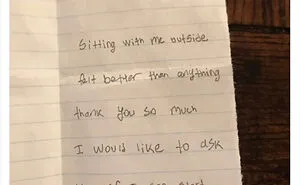 Sitting with me outside
felt better than anything
thank you so much
I would like to ask